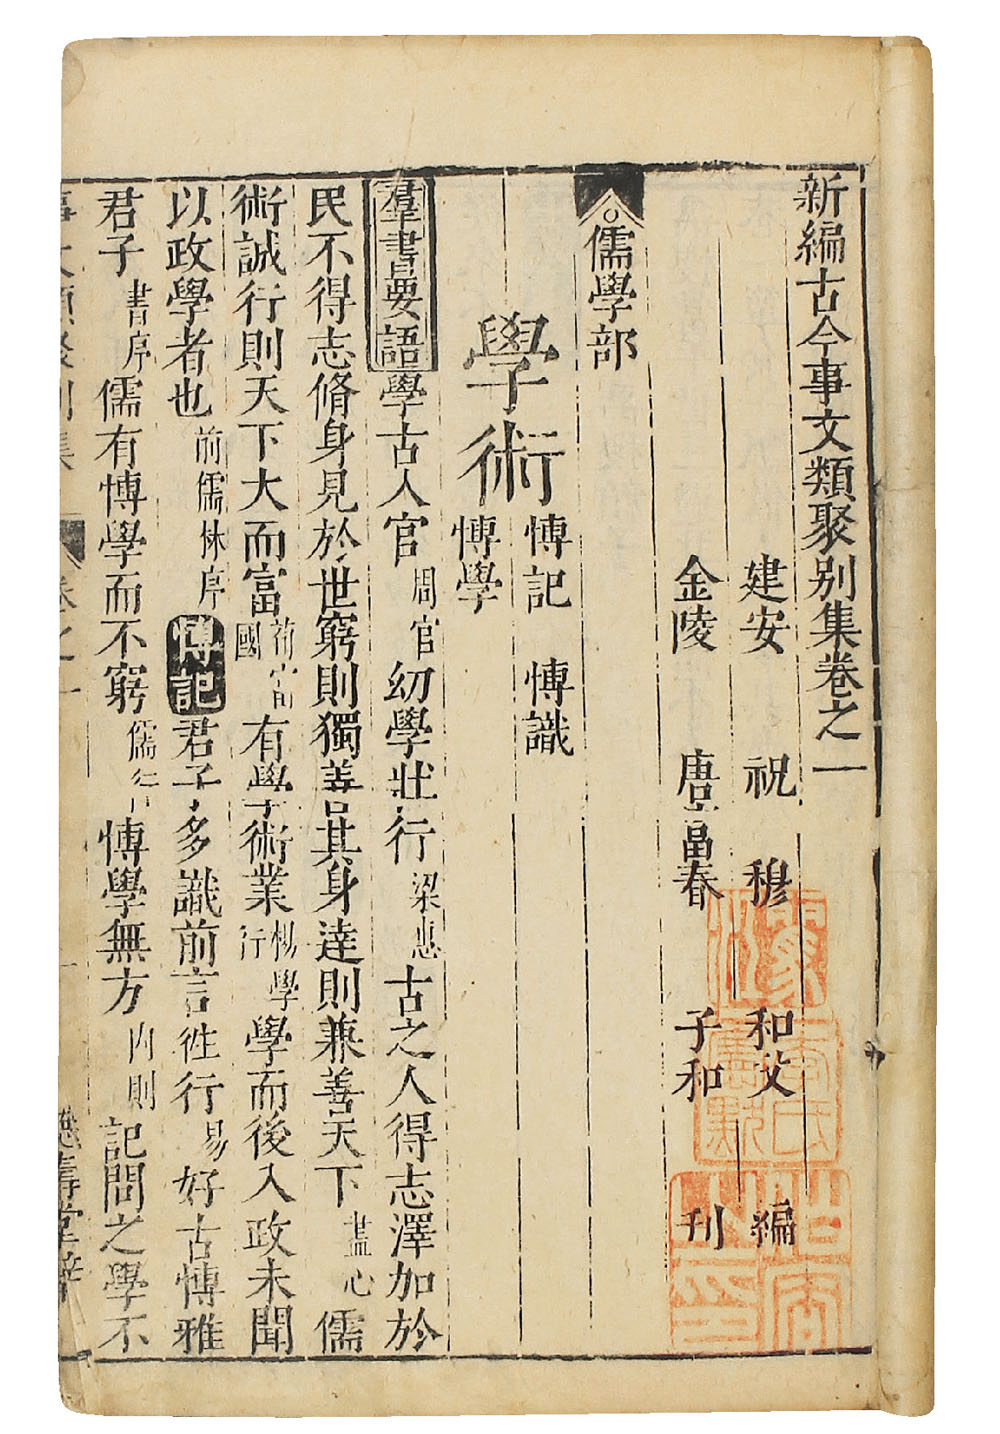 新編古今事文類聚别集卷之一
建安 祝 穆 和父 編
金陵 唐富春 子和 刊
儒學部
愽記 愽識
學術 愽學
羣書要語學古入官周官幼學壯行梁惠古之人得志澤加於
民不得志脩身見於世窮則獨善其身達則兼善天下盡心儒
術誠行則天下大而富荀富國有學術業楊學行學而後入政未聞
以政學者也前儒林序愽記君子多識前言徃行易好古愽雅
君子書序儒有愽學而不窮儒行愽學無方内則記問之學不